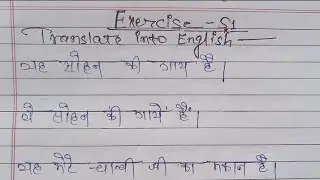 Exercise - 51
Translate into English —
यह मोहन की गाय है।
ये मोहन की गायें हैं।
यह मेरे चाची जी का मकान है।